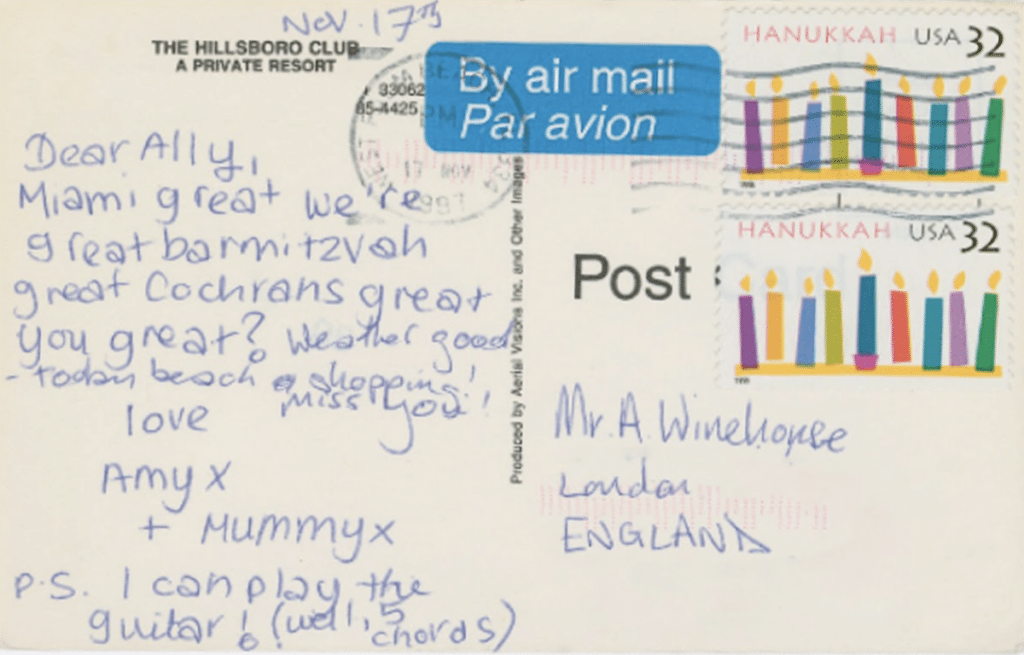 Nov. 17th
THE HILLSBORO CLUB
A PRIVATE RESORT
33062
85-4425
PM
17 NOV
1997
By air mail
Par avion
HANUKKAH USA 32
HANUKKAH USA 32
Dear Ally,
Miami great we're
great barmitzvah
great Cochrans great
you great? Weather good
- today beach & shopping!
Miss you!
love
Amy x
+ Mummy x
P.S. I can play the
guitar! (well, 5
chords)
Produced by Aerial Visions Inc. and Other Images
Post
Mr. A. Winehouse
London
ENGLAND